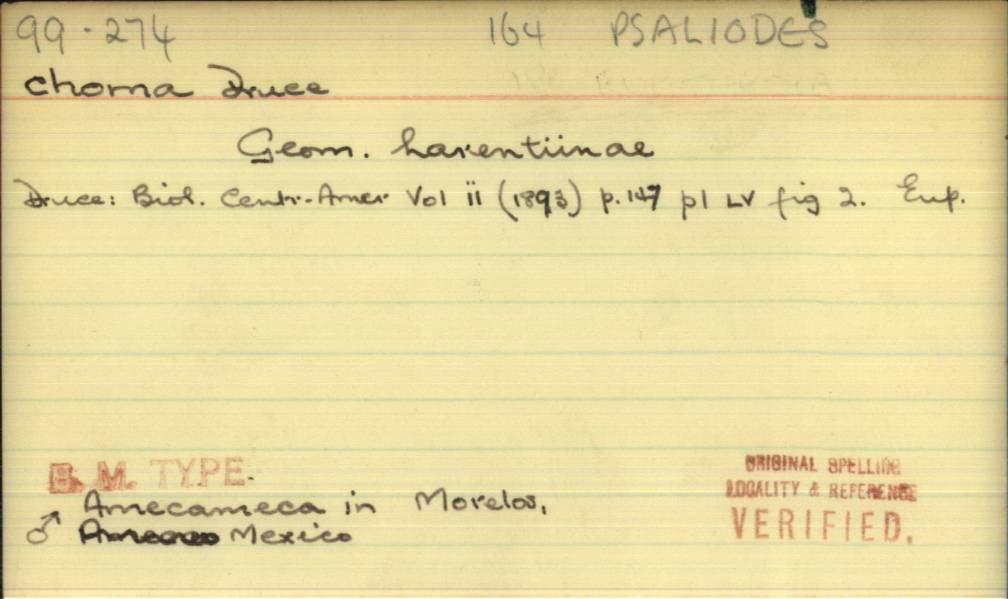 99-274 164 PSALIODES
chorna Druce
Geom. Larentiinae
Druce: Biol. Centr.-Amer Vol ii (1893) p. 147 pl LV fig 2. Eup.
B. M. TYPE.
Amecameca in Morelos,
♂ Mexico
ORIGINAL SPELLING
LOCALITY & REFERENCE
VERIFIED.